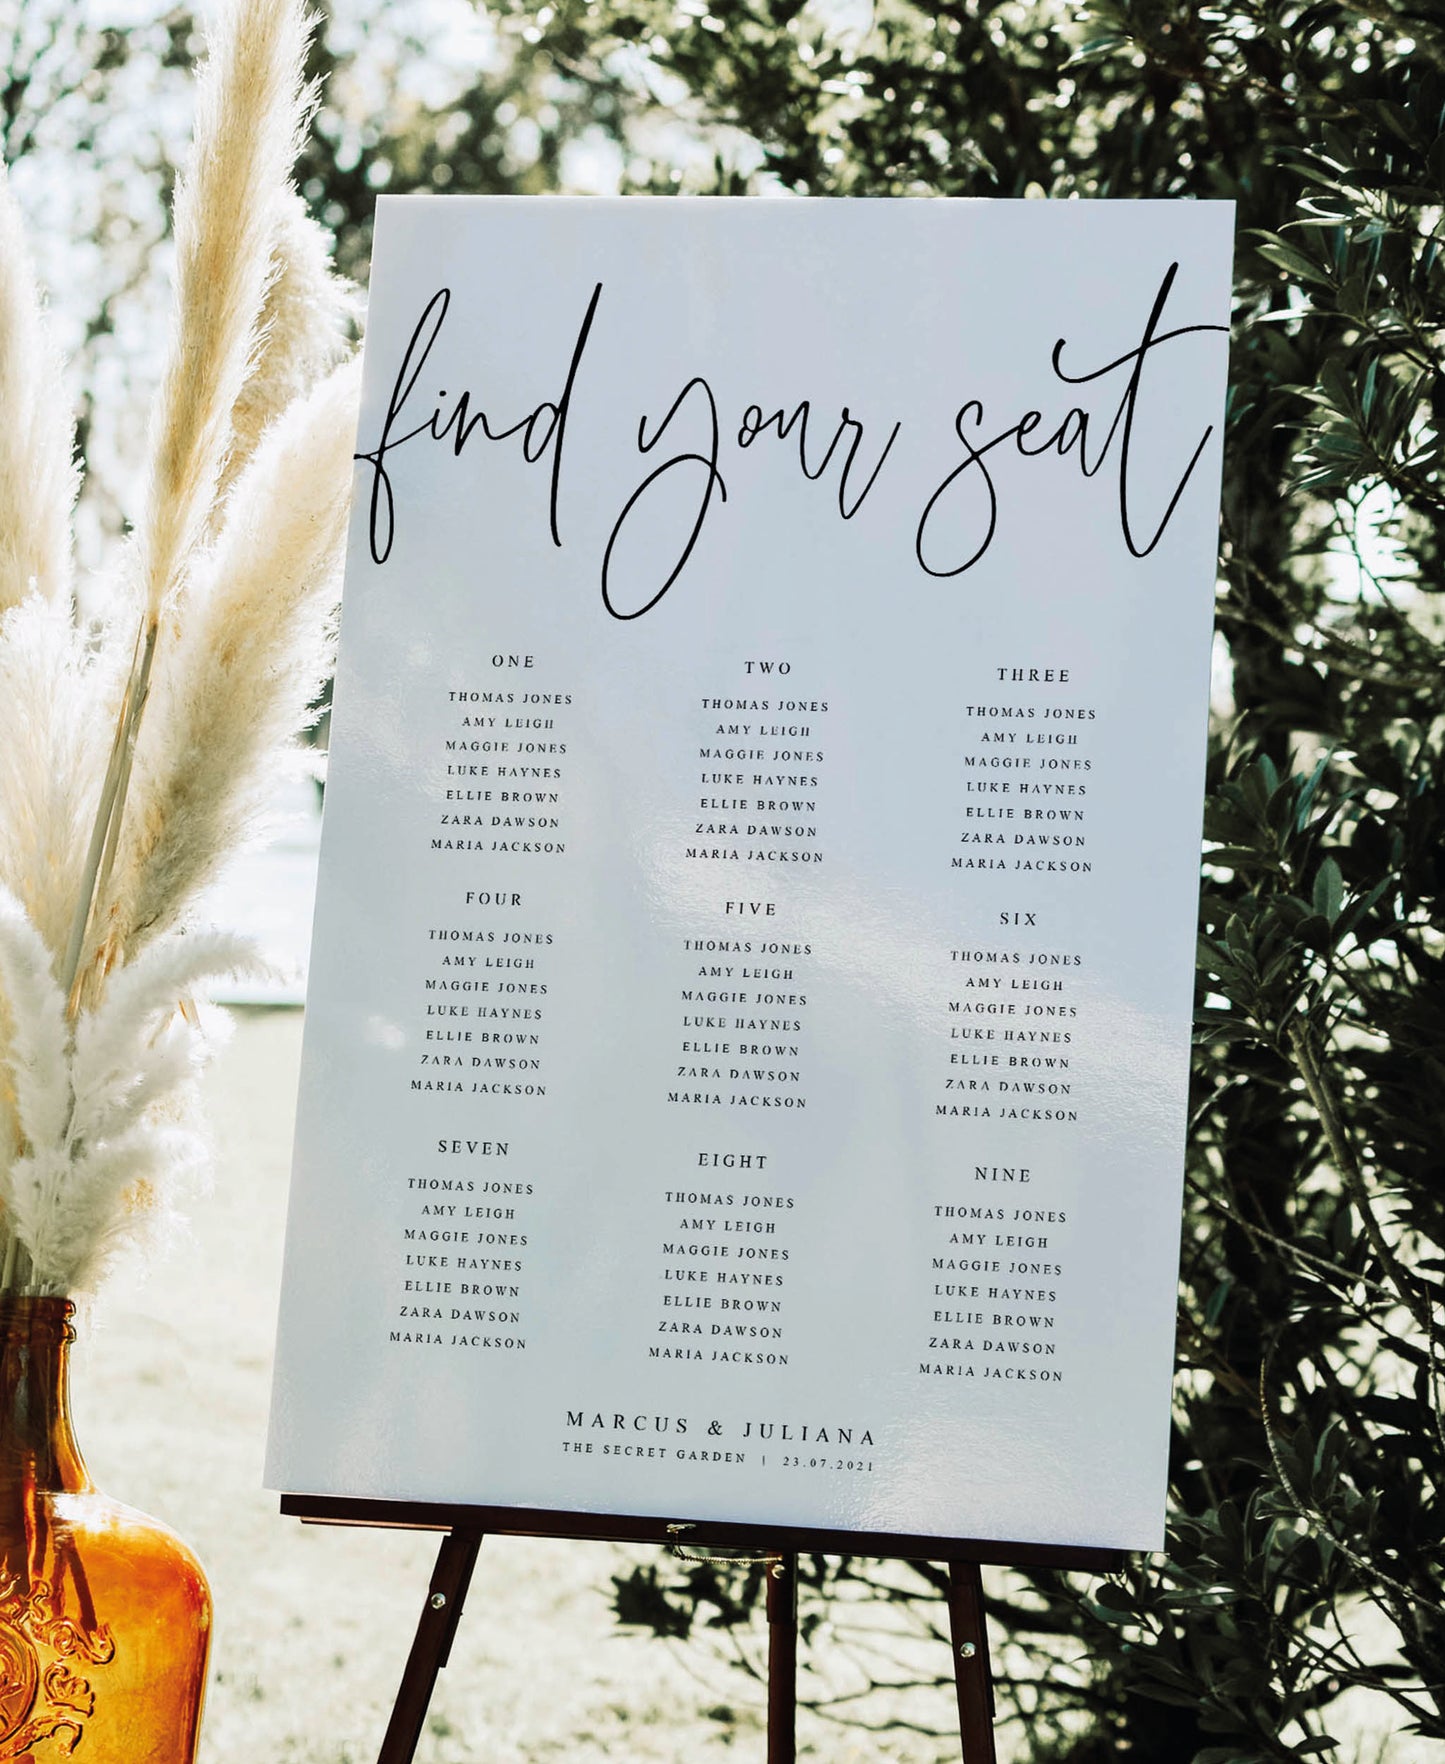 find your seat
ONE
THOMAS JONES
AMY LEIGH
MAGGIE JONES
LUKE HAYNES
ELLIE BROWN
ZARA DAWSON
MARIA JACKSON
TWO
THOMAS JONES
AMY LEIGH
MAGGIE JONES
LUKE HAYNES
ELLIE BROWN
ZARA DAWSON
MARIA JACKSON
THREE
THOMAS JONES
AMY LEIGH
MAGGIE JONES
LUKE HAYNES
ELLIE BROWN
ZARA DAWSON
MARIA JACKSON
FOUR
THOMAS JONES
AMY LEIGH
MAGGIE JONES
LUKE HAYNES
ELLIE BROWN
ZARA DAWSON
MARIA JACKSON
FIVE
THOMAS JONES
AMY LEIGH
MAGGIE JONES
LUKE HAYNES
ELLIE BROWN
ZARA DAWSON
MARIA JACKSON
SIX
THOMAS JONES
AMY LEIGH
MAGGIE JONES
LUKE HAYNES
ELLIE BROWN
ZARA DAWSON
MARIA JACKSON
SEVEN
THOMAS JONES
AMY LEIGH
MAGGIE JONES
LUKE HAYNES
ELLIE BROWN
ZARA DAWSON
MARIA JACKSON
EIGHT
THOMAS JONES
AMY LEIGH
MAGGIE JONES
LUKE HAYNES
ELLIE BROWN
ZARA DAWSON
MARIA JACKSON
NINE
THOMAS JONES
AMY LEIGH
MAGGIE JONES
LUKE HAYNES
ELLIE BROWN
ZARA DAWSON
MARIA JACKSON
MARCUS & JULIANA
THE SECRET GARDEN | 23.07.2021